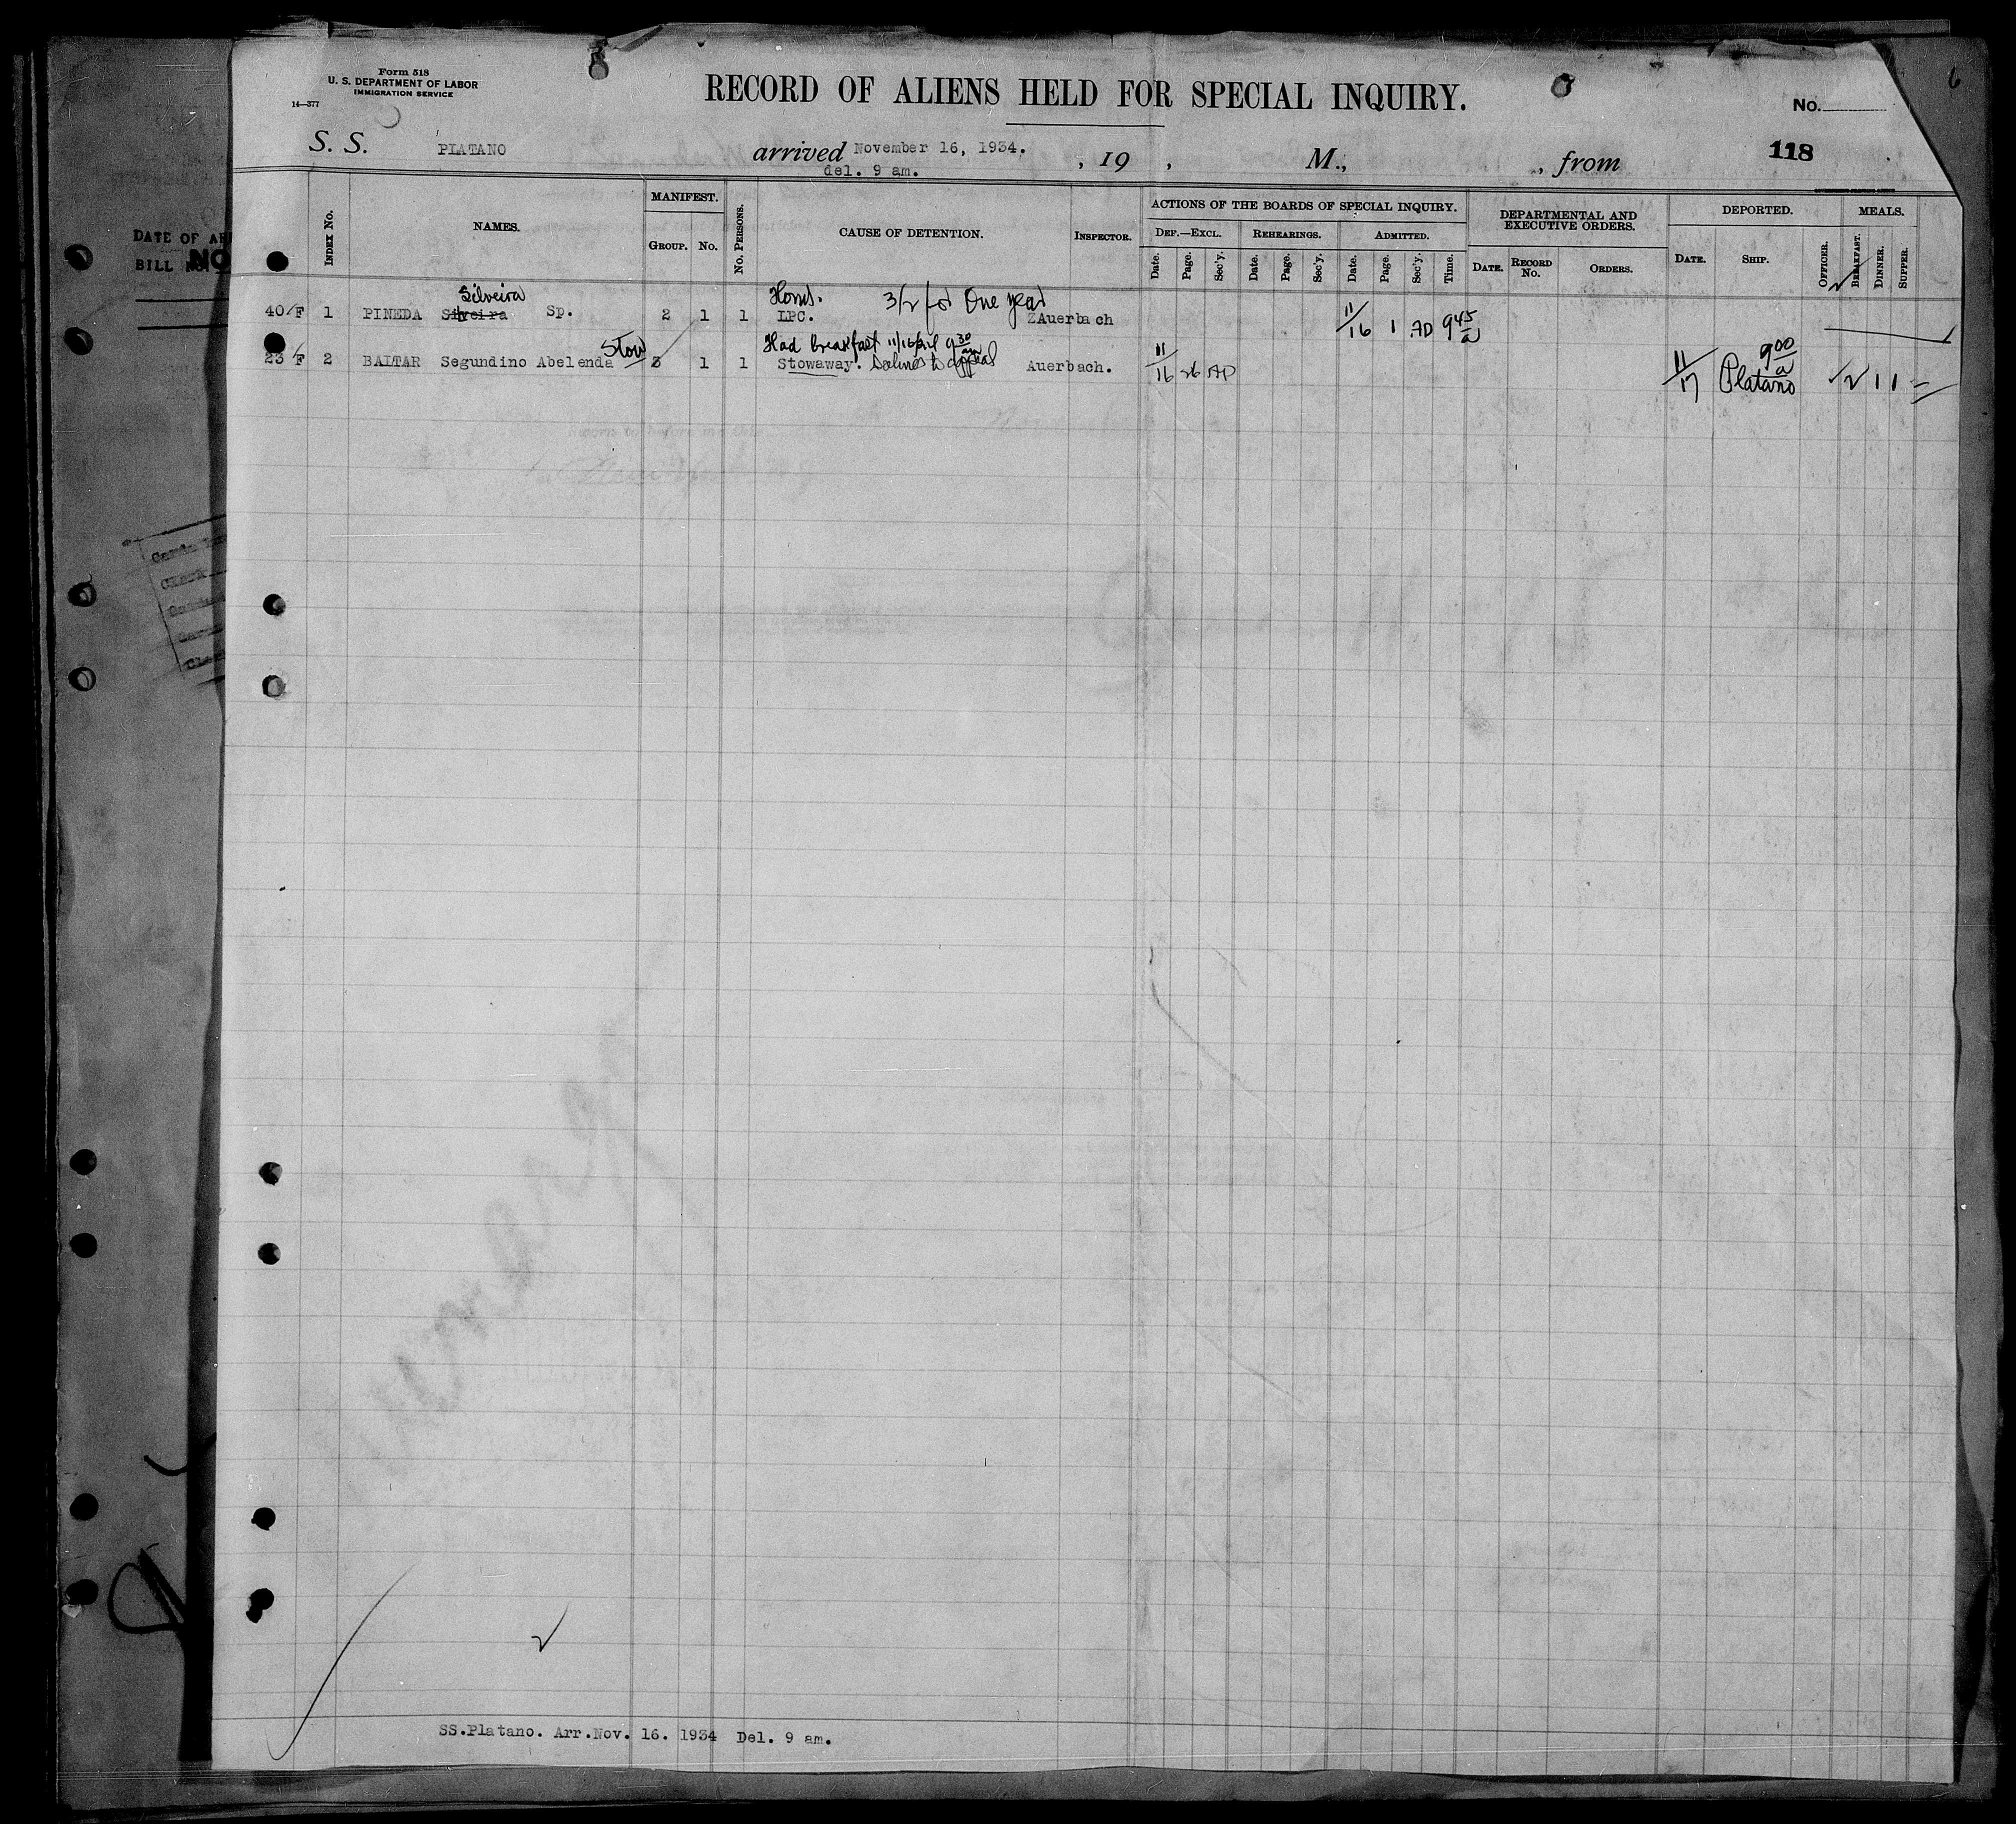 Form 518
U. S. DEPARTMENT OF LABOR
IMMIGRATION SERVICE
14—377
RECORD OF ALIENS HELD FOR SPECIAL INQUIRY.
No.
6
118
S. S. PLATANO arrived November 16, 1934. , 19 , M., , from
del. 9 am.
DATE OF AR
BILL NO.
NO
INDEX NO. NAMES. MANIFEST. GROUP. NO. NO. PERSONS. CAUSE OF DETENTION. INSPECTOR. ACTIONS OF THE BOARDS OF SPECIAL INQUIRY. DEF.—EXCL. Date. Page. Sec'y. REHEARINGS. Date. Page. Sec'y. ADMITTED. Date. Page. Sec'y. Time. DEPARTMENTAL AND EXECUTIVE ORDERS. DATE. RECORD NO. ORDERS. DEPORTED. DATE. SHIP. OFFICER. MEALS. BREAKFAST. DINNER. SUPPER.
Silveira Hond. 3/2 for One year
40/F 1 PINEDA Silveira Sp. 2 1 1 LPC. ZAuerbach 11/16 1 AD 9 45 a
Stow Had Breakfast 11/16 9 30 am
23/F 2 BALTAR Segundino Abelenda 3 1 1 Stowaway. to appeal Auerbach. 11/16 26 AD 11/17 9 00 a Platano 11
Clerk
SS.Platano. Arr.Nov. 16. 1934 Del. 9 am.